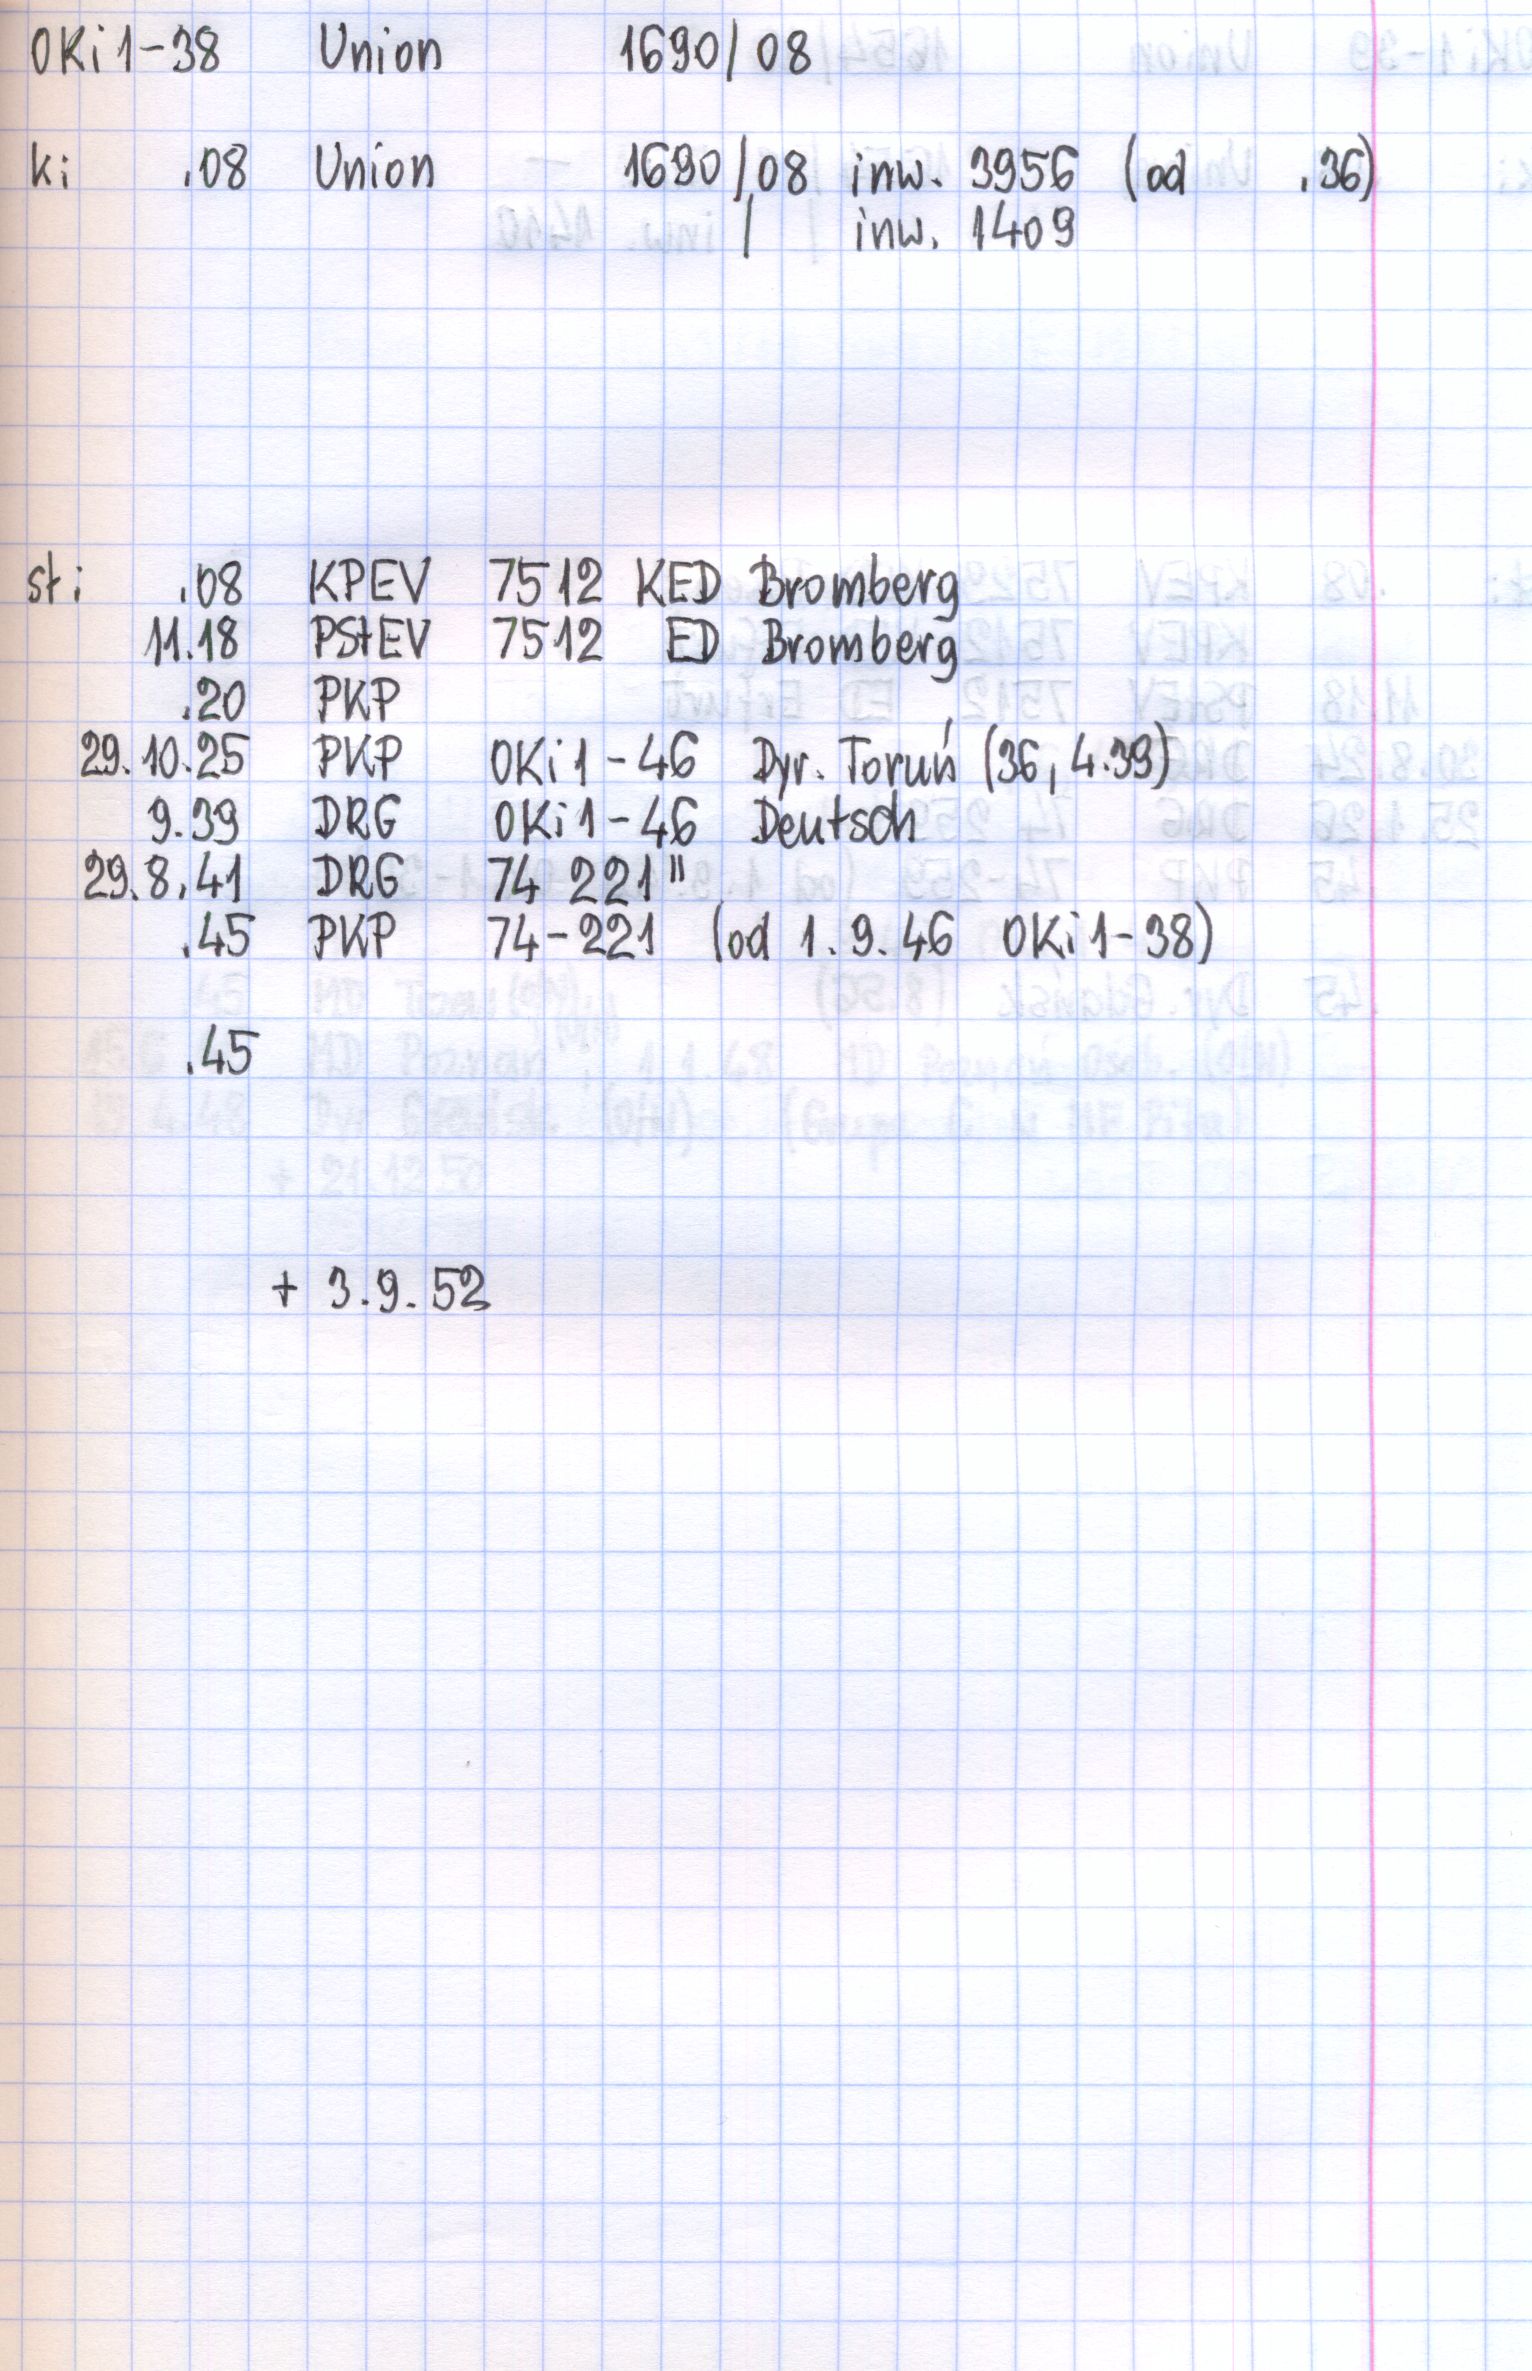 OKi1-38 Union 1690/08
ki .08 Union 1690/08 inw. 3956 (od .36)
/ inw. 1409
st: .08 KPEV 7512 KED Bromberg
11.18 PStEV 7512 ED Bromberg
.20 PKP
29.10.25 PKP OKi1-46 Dyr. Toruń (36, 4.39)
9.39 DRG OKi1-46 Deutsch
29.8.41 DRG 74 221"
.45 PKP 74-221 (od 1.9.46 OKi1-38)
.45
+ 3.9.52